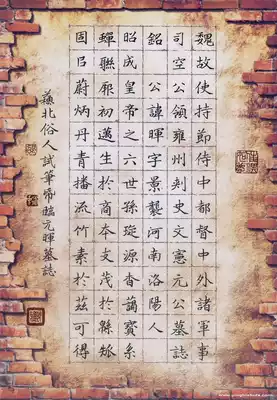 魏故使持節侍中都督中外諸軍事
司空公領雍州刾史文憲元公墓誌
銘 公諱暉字景襲河南洛陽人
昭成皇帝之六世孫琁源杳藹寶系
蟬聯初邁生於商本支茂於緜瓞
固㠯蔚炳丹青播流竹素於茲可得
蘇北俗人試筆臨元暉墓誌